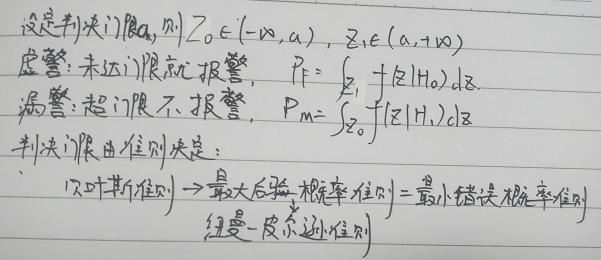 设定判决门限a,则Z₀∈(-∞,a),Z₁∈(a,+∞)
虚警:未达门限就报警, P_F=∫_{Z₁} f(z|H₀)dz.
漏警:超门限不报警, P_m=∫_{Z₀} f(z|H₁)dz
判决门限由准则决定:
贝叶斯准则→最大后验概率准则=最小错误概率准则
↓
纽曼-皮尔逊准则